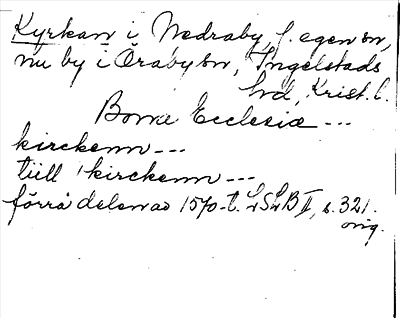 Kyrkan i Nedraby, f. egen sn,
nu by i Öraby sn, Ingelstads
hd, Krist. l.
Bona Ecclesiæ ---
kirckenn ---
tiill kirckenn ---
förra delen av 1570-t. LSLB II, s. 321.
orig.